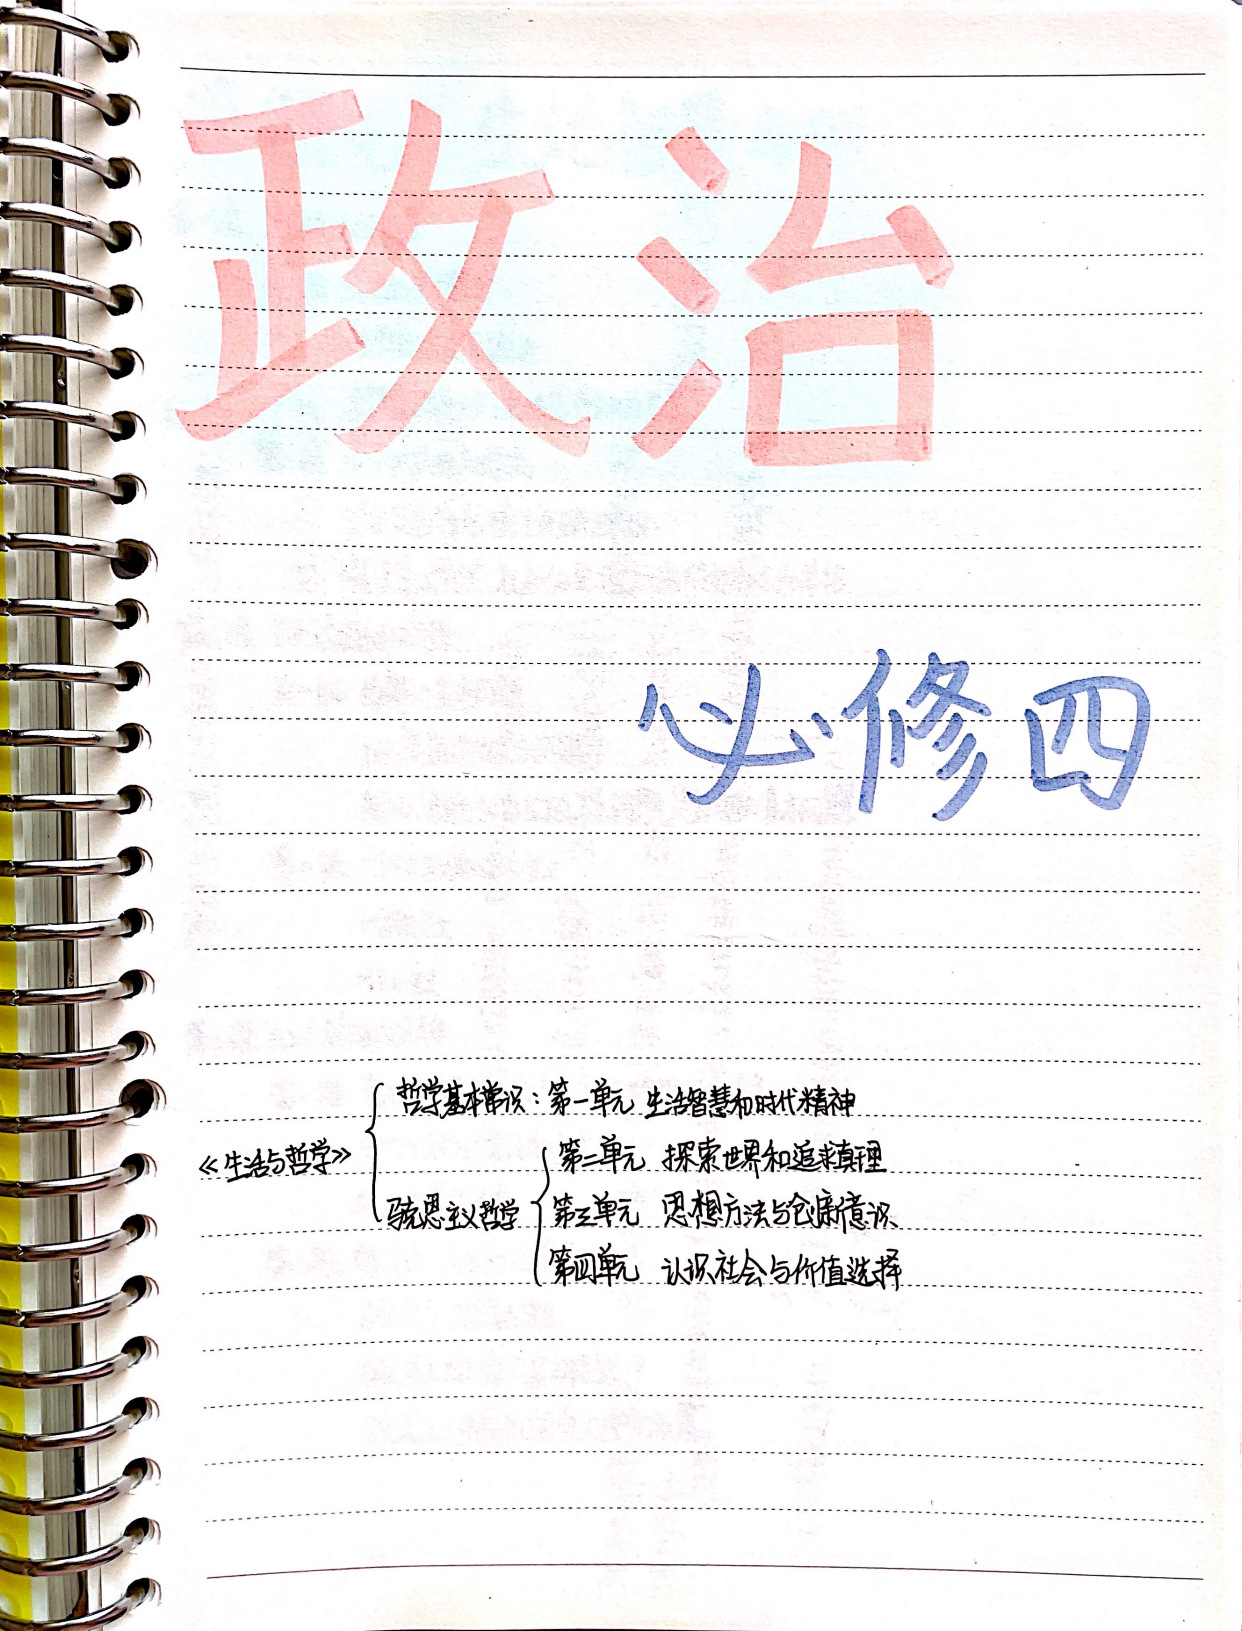 政治
必修四
哲学基本常识：第一单元 生活智慧和时代精神
《生活与哥学》
第二单元 探索世界和追求真理
马克思主义哲学
第三单元 思想方法与创新意识
第四单元 认识社会与价值选择